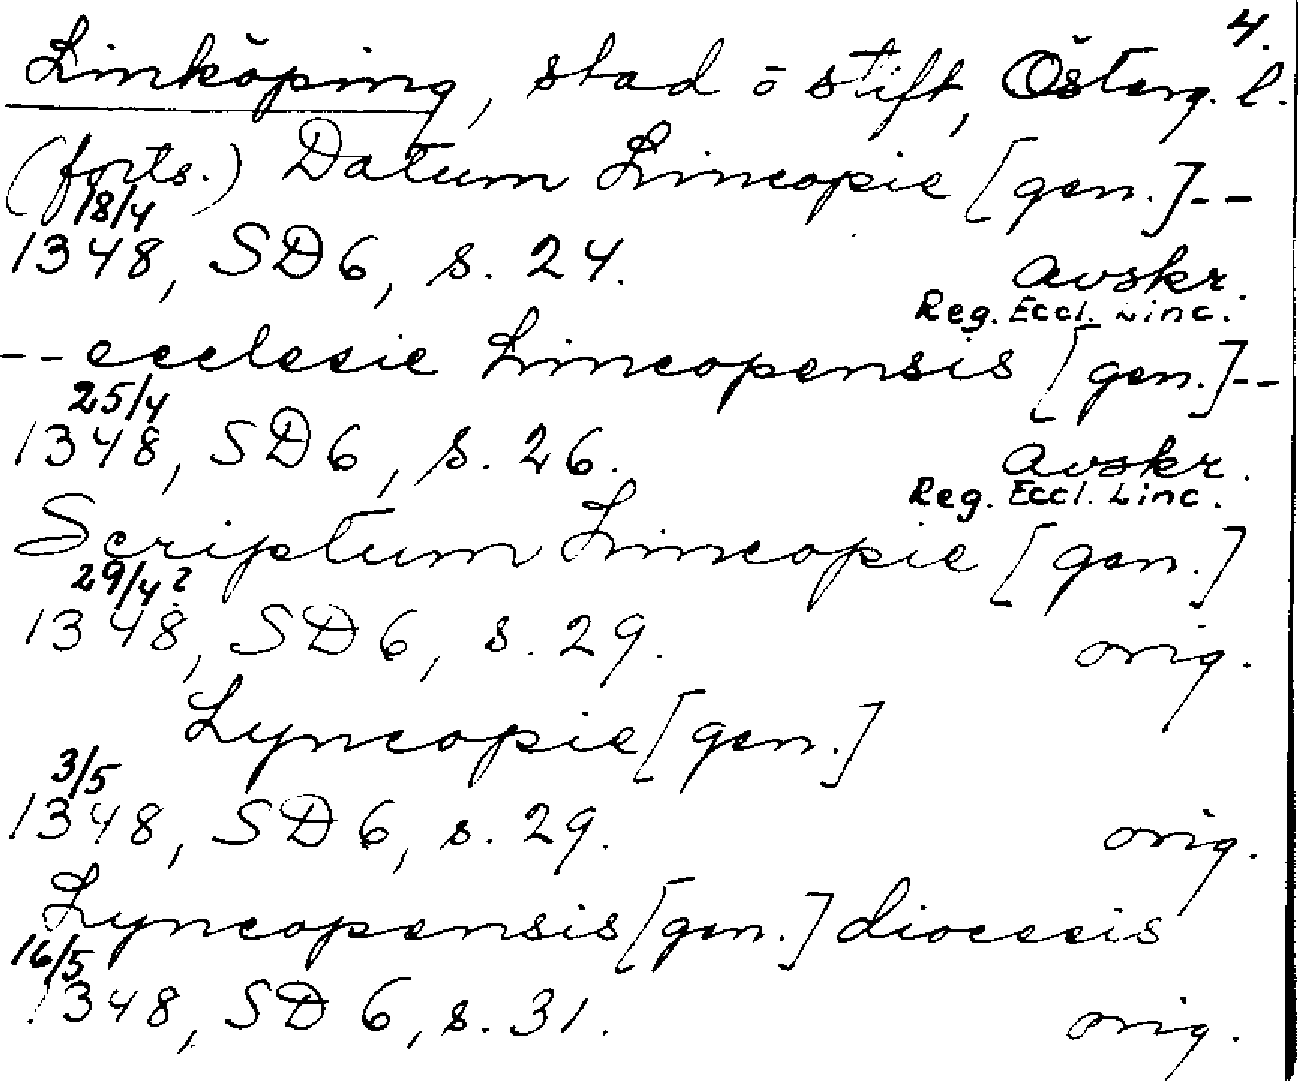 4.
Linköping, stad o stift, Österg. l.
(forts.) Datum Lincopie [gen.]--
18/4
1348, SD 6, s. 24. Avskr.
Reg. Eccl. Linc.
-- ecclesie Lincopensis [gen.]--
25/4
1348, SD 6, s. 26. Avskr.
Reg. Eccl. Linc.
Scriptum Lincopie [gen.]
29/4?
1348, SD 6, s. 29. orig.
Lyncopie [gen.]
3/5
1348, SD 6, s. 29. orig.
Lyncopensis [gen.] diocesis
16/5
1348, SD 6, s. 31. orig.